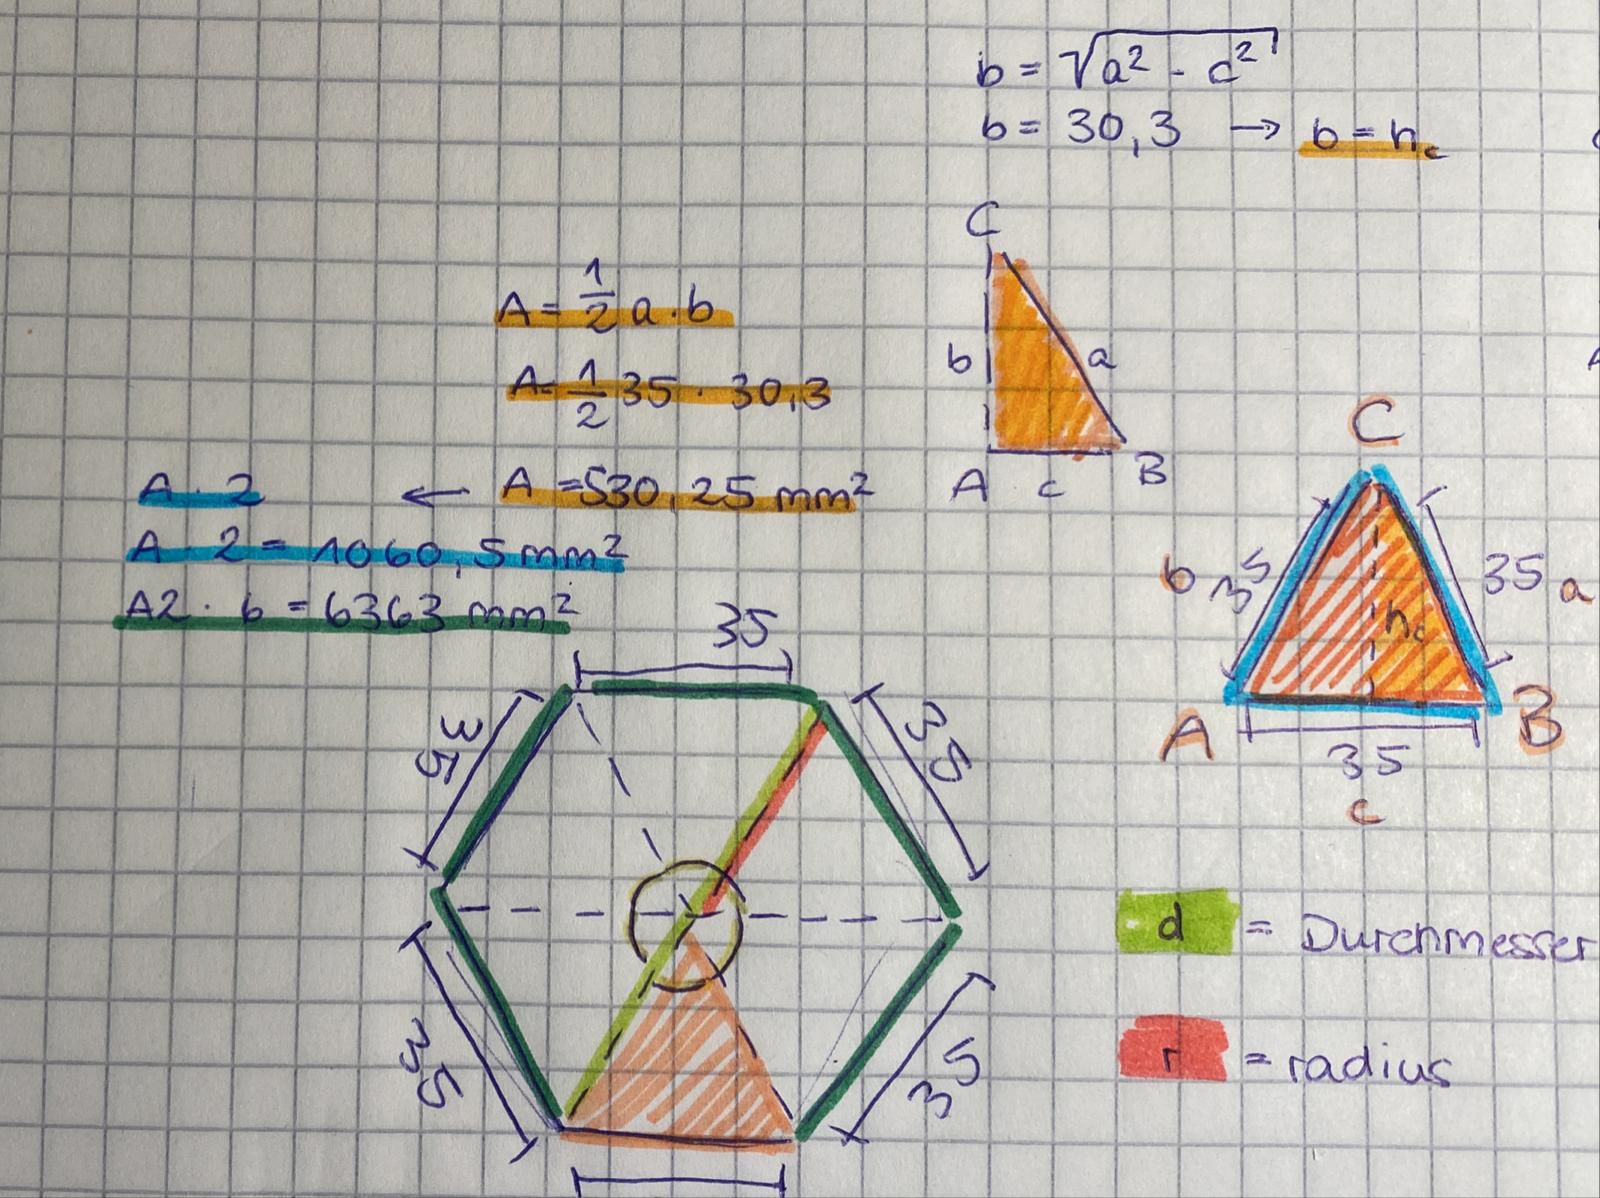 b = √a² - c²
b = 30,3 → b = hc
C
A = 1/2 a · b
b a
A = 1/2 35 · 30,3
A c B
C
A · 2 ← A = 530,25 mm²
A · 2 = 1060,5 mm²
A2 · 6 = 6363 mm²
b 35 hc 35 a
A B
35
c
35
35 35
35 35
d = Durchmesser
r = radius